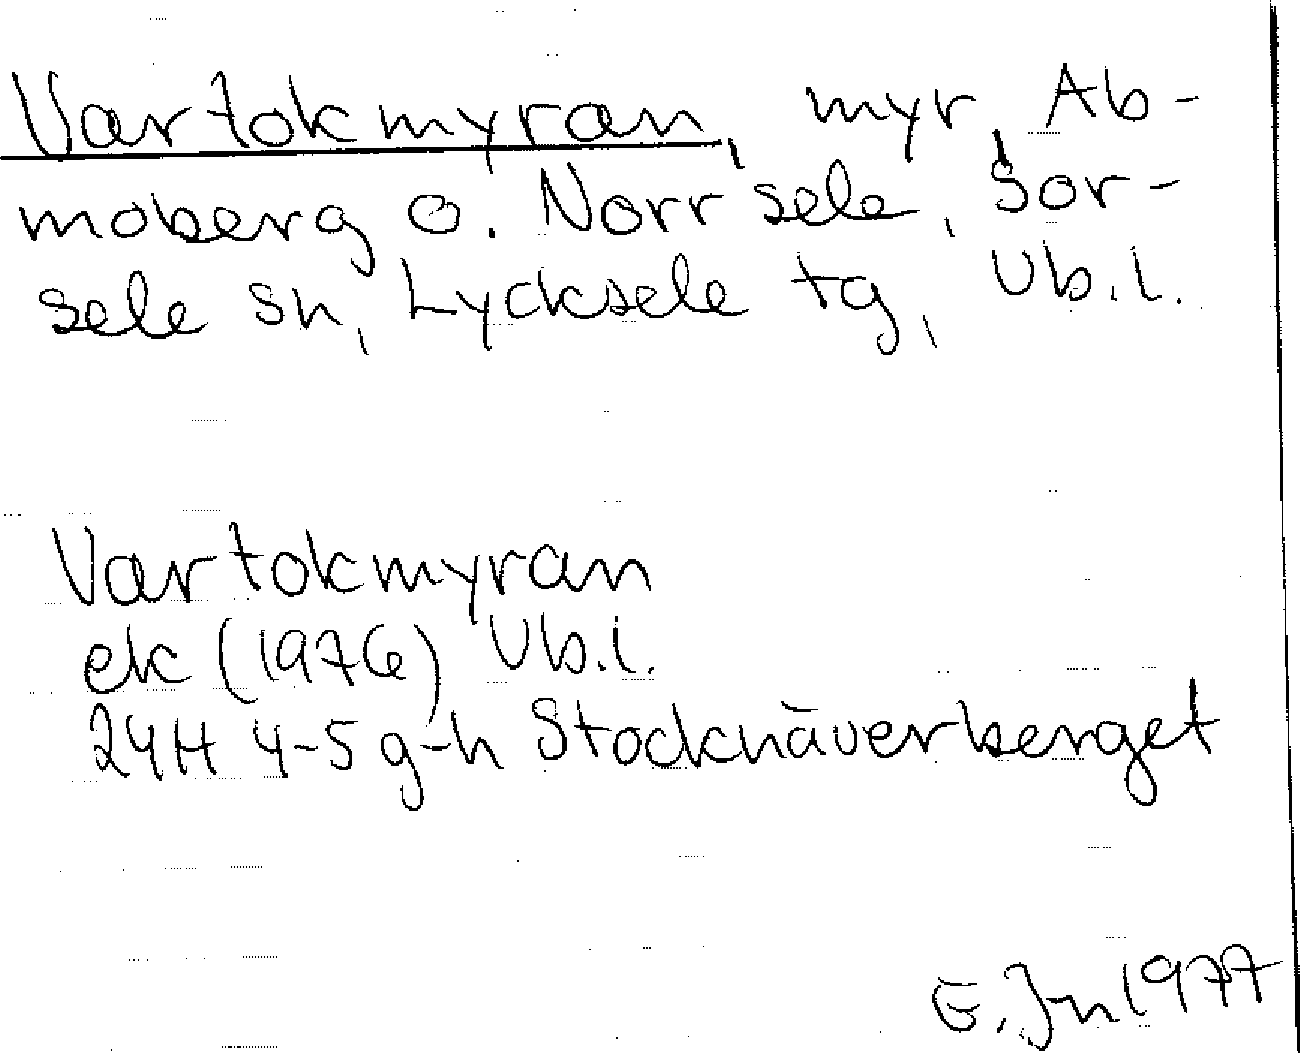 Vartokmyran, myr, Ab-
moberg o. Norrsele, Sor-
sele sn, Lycksele tg, Vb.l.
Vartokmyran
ek (1976) Vb.l.
24H 4-5 g-h Stocknäverberget
E. Jn 1977